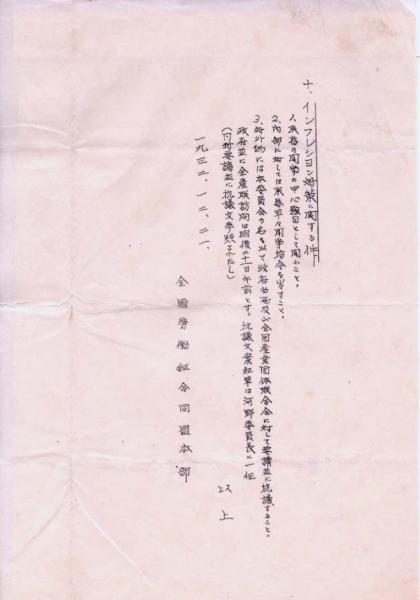 十、インフレション対策に関する件
1、来春の闘争の中心題目として闘ふこと。
2、内部に対しては来春早々闘争指令を出すこと。
3、対外的には本委員会の名を以て政府当局及び全国産業団体聯合会に対して要請並に抗議すること。
政府並に全産聯訪問は明後二十一日午前とす。抗議文案起草は河野委員長に一任
(付対要請並に抗議文参照されたし)
以上
一九三二、一二、二一、
全国労働組合同盟本部